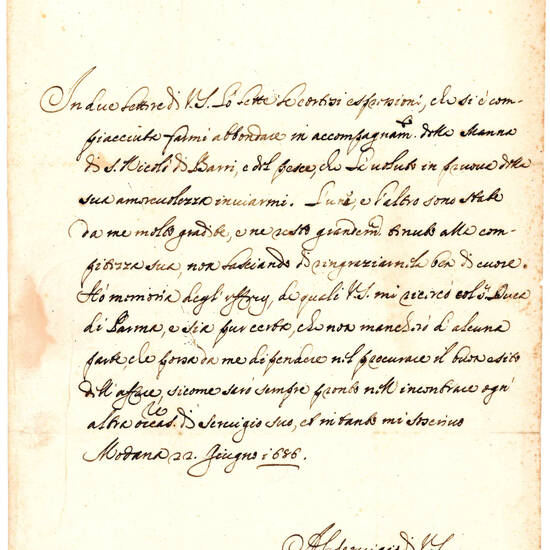 In due lettere di V.S. ho lette le cortesi espressioni, che si è com-
piacciuta farmi abbondare in accompagnam.to della Manna
di S. Nicolò di Barri, e del pesce, che hà voluto in pruova della
sua amorevolezza inviarmi. L'una, e l'altro sono state
da me molto gradite, e ne resto grandem.te tenuto alla com-
pitezza sua, non lasciando di ringraziarnela ben di cuore.
Hò memoria degl' uffizij, de quali V.S. mi ricercò col S.r Duca
di Parma, e sia pur certa, che non mancherò d'alcuna
parte, che possa da me dipendere nel procurare il buon esito
dell'affare, sicome sarò sempre pronto nell'incontrare ogn'
altra occas.ne di servigio suo, et intanto mi
Modana 22. Giugno 1686.
Al servigio di V.S.